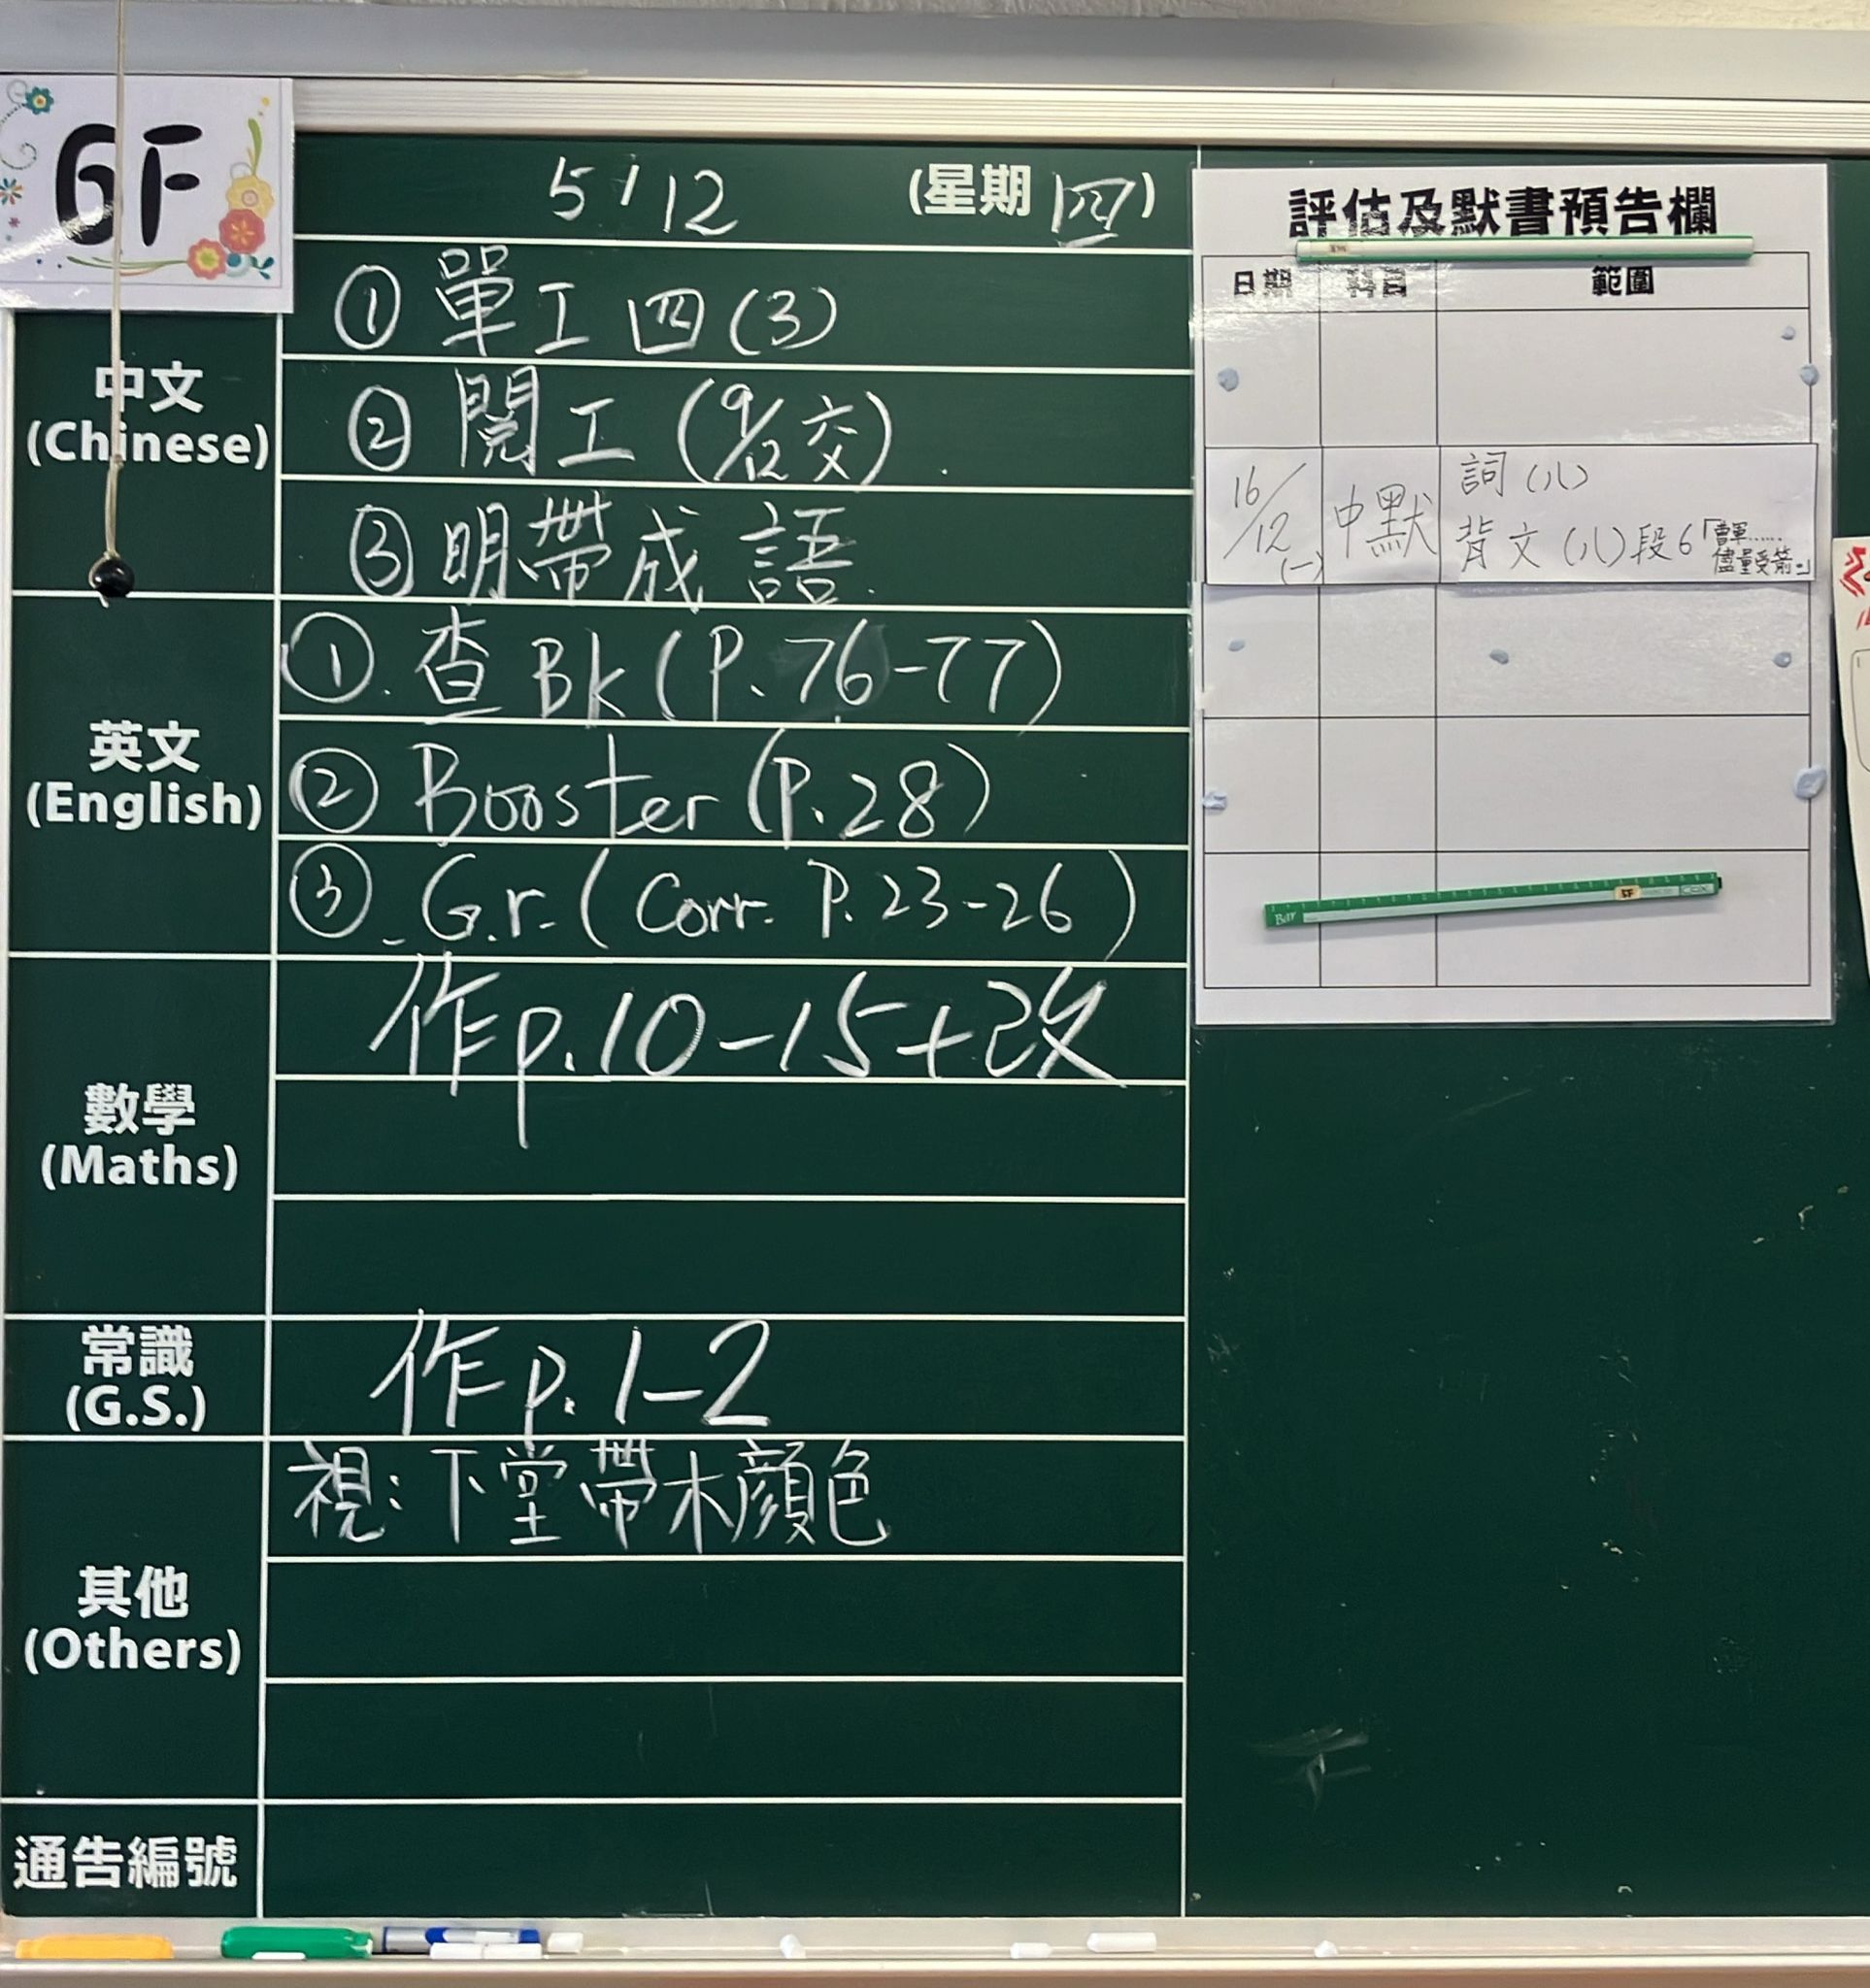 6F
5/12 (星期四)
中文
(Chinese)
① 單工四(3)
② 閱工(9/12交)
③ 明帶成語
英文
(English)
①.查Bk(P.76-77)
② Booster (P.28)
③ G.r.(Corr. P.23-26)
數學
(Maths)
作p.10-15+改
常識
(G.S.)
作p.1-2
其他
(Others)
視:下堂帶木顏色
通告編號
評估及默書預告欄
日期 科目 範圍
16/12 (一) 中默 詞(八)
背文(八)段6「曹軍……
儘量受箭。」